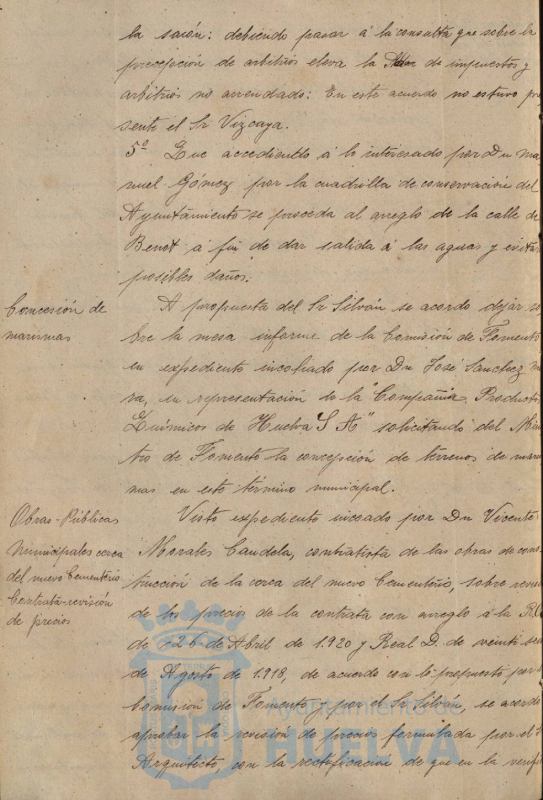 la sasión: debiendo pasar á la consulta que sobre la
precepción de arbitrios eleva la de impuestos y
arbitrios no arrendado: En este acuerdo no estuvo pre
sente el Sr Vizcaya.
5º Que accediendo á lo interesado por Dn Ma
nuel Gómez por la cuadrilla de conservación del
Ayuntamiento se proceda al arreglo de la calle de
Benot á fin de dar salida á las aguas y evitar
posibles daños.
Concesión de
marismas
A propuesta del Sr Silván se acordo dejar so
bre la mesa informe de la Comisión de Fomento
en expediente incohado por Dn José Sanchez
va, en representación de la "Compañia Productos
Químicos de Huelva S A" solicitando del Minis
tro de Fomento la concepción de terrenos de maris
mas en este término municipal.
Obras-Públicas
Municipales cerca
del nuevo Cementerio
Contrata-revisión
de precios
Visto expediente incoado por Dn Vicente
Morales Candela, contratista de las obras de cons
trucción de la cerca del nuevo Cementerio, sobre
de los precios de la contrata con arreglo á la R.O
de 26 de Abril de 1.920 y Real D. de veinti
de Agosto de 1.918, de acuerdo con lo propuesto por la
Comisión de Fomento y por el Sr Silván, se acordó
aprobar la revisión de precios formulada por el
Arquitecto, con la rectificación de que en la
Ayuntamiento
HUELVA